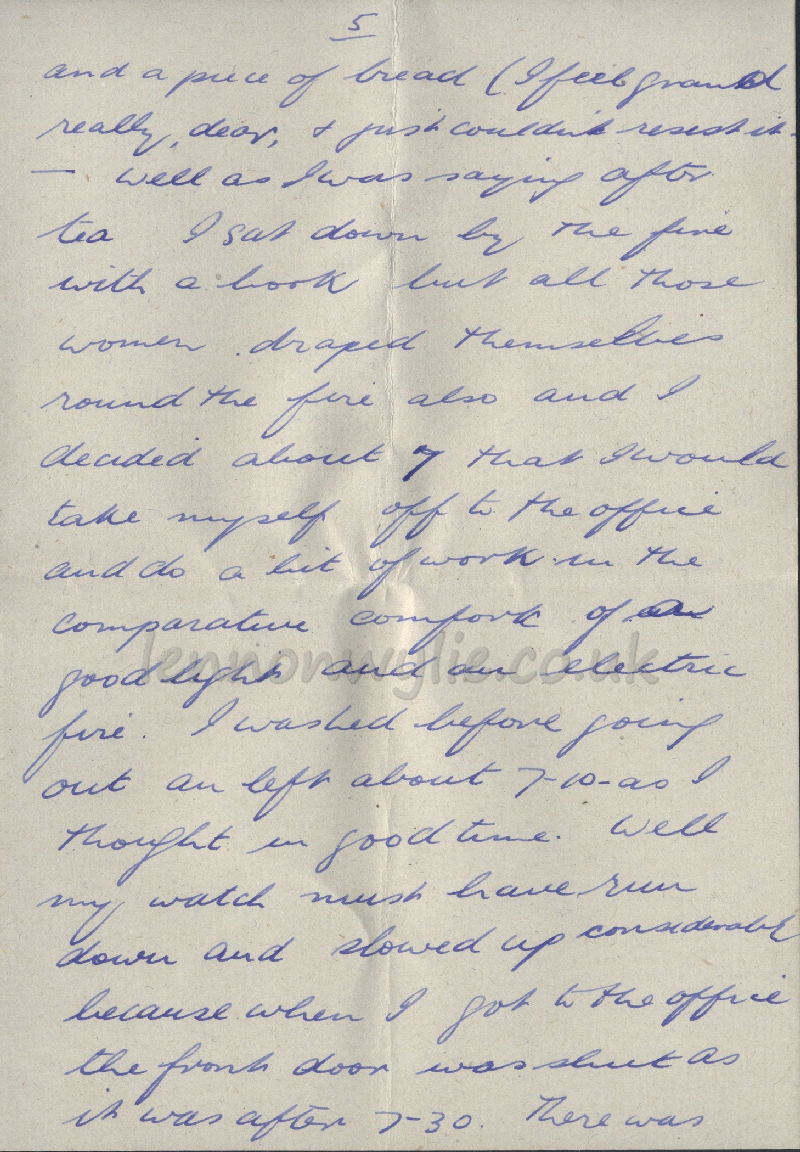 5
and a piece of bread (I feel grand
really, dear, & just couldn't resist it -
— Well as I was saying after
tea I sat down by the fire
with a book but all those
women draped themselves
round the fire also and I
decided about 7 that I would
take myself off to the office
and do a bit of work in the
comparative comfort of
good light and an electric
fire. I washed before going
out an left about 7-10-as I
thought in good time. Well
my watch must have run
down and slowed up considerably
because when I got to the office
the front door was shut as
it was after 7-30. There was
lennonwylie.co.uk